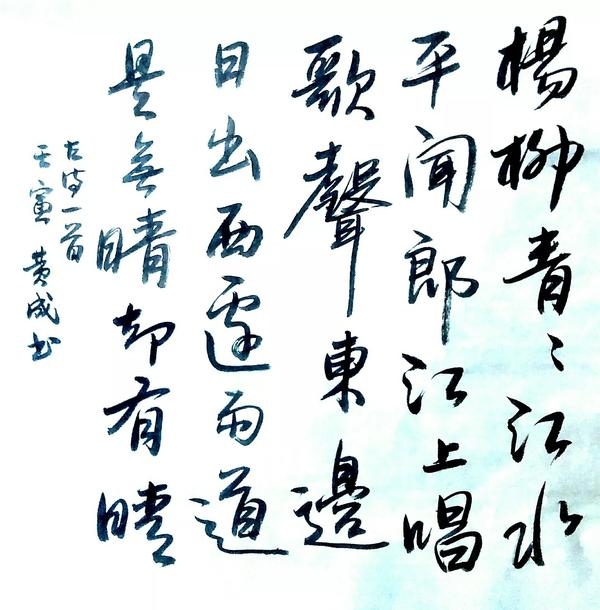 楊柳青〻江水
平闻郎江上唱
歌聲東邊
日出西邊雨道
是無晴却有晴
古诗一首
壬寅 黄成书